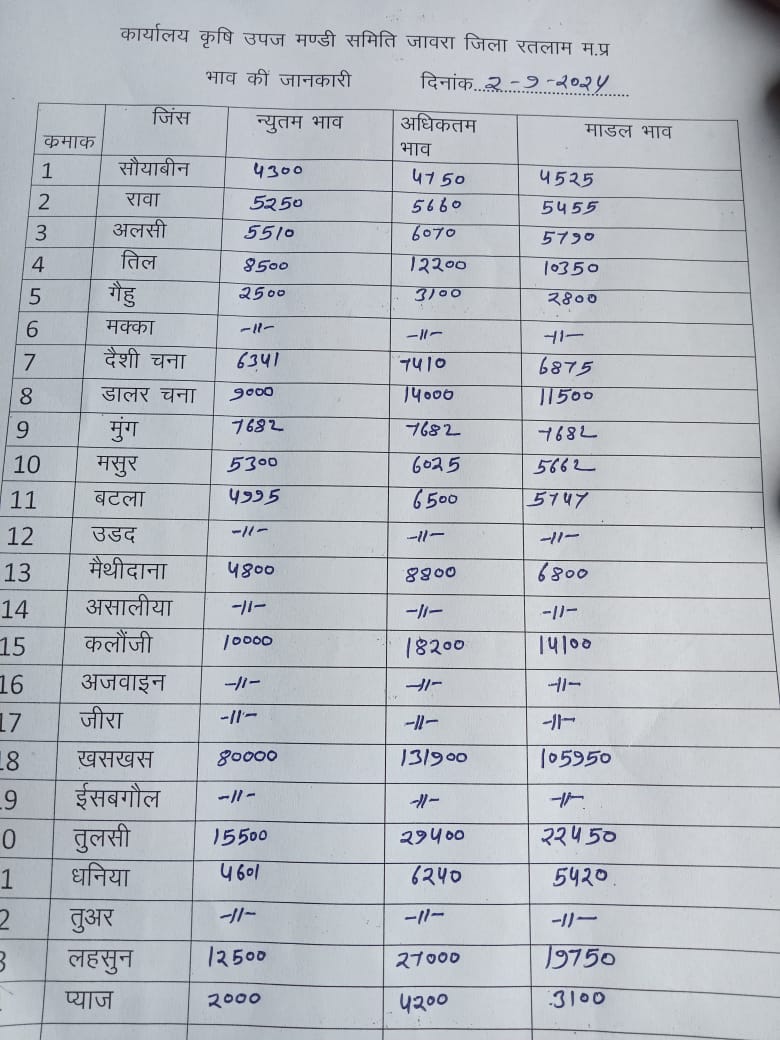 कार्यालय कृषि उपज मण्डी समिति जावरा जिला रतलाम म.प्र
भाव की जानकारी दिनांक 2-9-2024
कमाक जिंस न्युतम भाव अधिकतम भाव माडल भाव
1 सौयाबीन 4300 4750 4525
2 रावा 5250 5660 5455
3 अलसी 5510 6070 5790
4 तिल 8500 12200 10350
5 गैहु 2500 3100 2800
6 मक्का -11- -11- -11-
7 दैशी चना 6341 7410 6875
8 डालर चना 9000 14000 11500
9 मुंग 7682 7682 7682
10 मसुर 5300 6025 5662
11 बटला 4995 6500 5747
12 उडद -11- -11- -11-
13 मैथीदाना 4800 8800 6800
14 असालीया -11- -11- -11-
15 कलौंजी 10000 18200 14100
16 अजवाइन -11- -11- -11-
17 जीरा -11- -11- -11-
18 खसखस 80000 131900 105950
9 ईसबगौल -11- -11- -11-
0 तुलसी 15500 29400 22450
1 धनिया 4601 6240 5420
2 तुअर -11- -11- -11-
3 लहसुन 12500 27000 19750
प्याज 2000 4200 3100